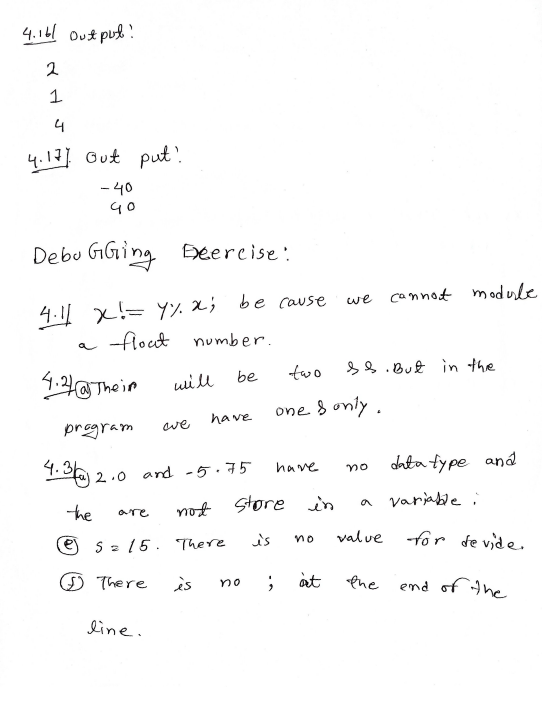 4.16/ Output:
2
1
4
4.17/ Out put:
-40
40
DebuGGing Exercise:
4.1/ x!= y% x; be cause we cannot module
a float number.
4.2/ (a) Their will be two &&. But in the
program we have one & only.
4.3/ (a) 2.0 and -5.75 have no data type and
the are not store in a variable:
(e) s=15. There is no value for devide.
(f) There is no ; at the end of the
line.